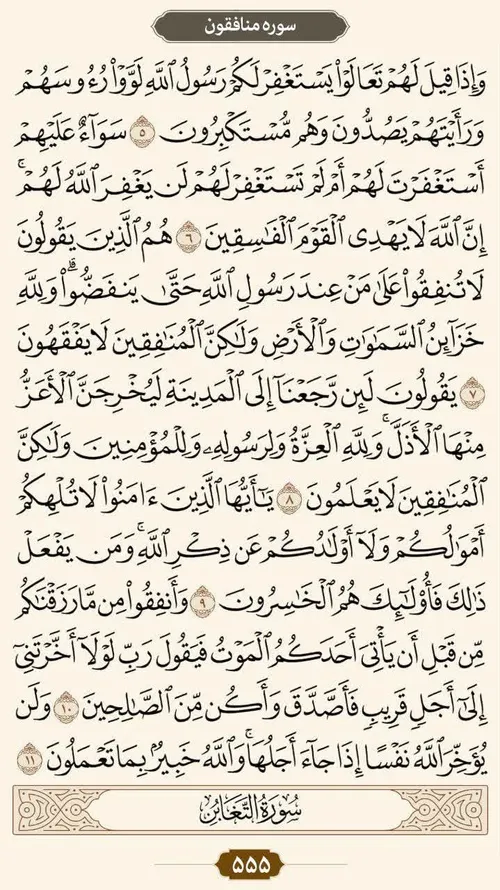 سوره منافقون
وَإِذَا قِيلَ لَهُمْ تَعَالَوْا۟ يَسْتَغْفِرْ لَكُمْ رَسُولُ ٱللَّهِ لَوَّوْا۟ رُءُوسَهُمْ
وَرَأَيْتَهُمْ يَصُدُّونَ وَهُم مُّسْتَكْبِرُونَ ٥ سَوَآءٌ عَلَيْهِمْ
أَسْتَغْفَرْتَ لَهُمْ أَمْ لَمْ تَسْتَغْفِرْ لَهُمْ لَن يَغْفِرَ ٱللَّهُ لَهُمْ ۚ
إِنَّ ٱللَّهَ لَا يَهْدِى ٱلْقَوْمَ ٱلْفَاسِقِينَ ٦ هُمُ ٱلَّذِينَ يَقُولُونَ
لَا تُنفِقُوا۟ عَلَىٰ مَنْ عِندَ رَسُولِ ٱللَّهِ حَتَّىٰ يَنفَضُّوا۟ ۗ وَلِلَّهِ
خَزَآئِنُ ٱلسَّمَٰوَٰتِ وَٱلْأَرْضِ وَلَٰكِنَّ ٱلْمُنَٰفِقِينَ لَا يَفْقَهُونَ
٧ يَقُولُونَ لَئِن رَّجَعْنَآ إِلَى ٱلْمَدِينَةِ لَيُخْرِجَنَّ ٱلْأَعَزُّ
مِنْهَا ٱلْأَذَلَّ ۚ وَلِلَّهِ ٱلْعِزَّةُ وَلِرَسُولِهِۦ وَلِلْمُؤْمِنِينَ وَلَٰكِنَّ
ٱلْمُنَٰفِقِينَ لَا يَعْلَمُونَ ٨ يَٰٓأَيُّهَا ٱلَّذِينَ ءَامَنُوا۟ لَا تُلْهِكُمْ
أَمْوَٰلُكُمْ وَلَآ أَوْلَٰدُكُمْ عَن ذِكْرِ ٱللَّهِ ۚ وَمَن يَفْعَلْ
ذَٰلِكَ فَأُو۟لَٰٓئِكَ هُمُ ٱلْخَٰسِرُونَ ٩ وَأَنفِقُوا۟ مِن مَّا رَزَقْنَٰكُم
مِّن قَبْلِ أَن يَأْتِىَ أَحَدَكُمُ ٱلْمَوْتُ فَيَقُولَ رَبِّ لَوْلَآ أَخَّرْتَنِىٓ
إِلَىٰٓ أَجَلٍ قَرِيبٍ فَأَصَّدَّقَ وَأَكُن مِّنَ ٱلصَّٰلِحِينَ ١٠ وَلَن
يُؤَخِّرَ ٱللَّهُ نَفْسًا إِذَا جَآءَ أَجَلُهَا ۚ وَٱللَّهُ خَبِيرٌۢ بِمَا تَعْمَلُونَ ١١
سُورَةُ التَّغَابُنِ
۵۵۵